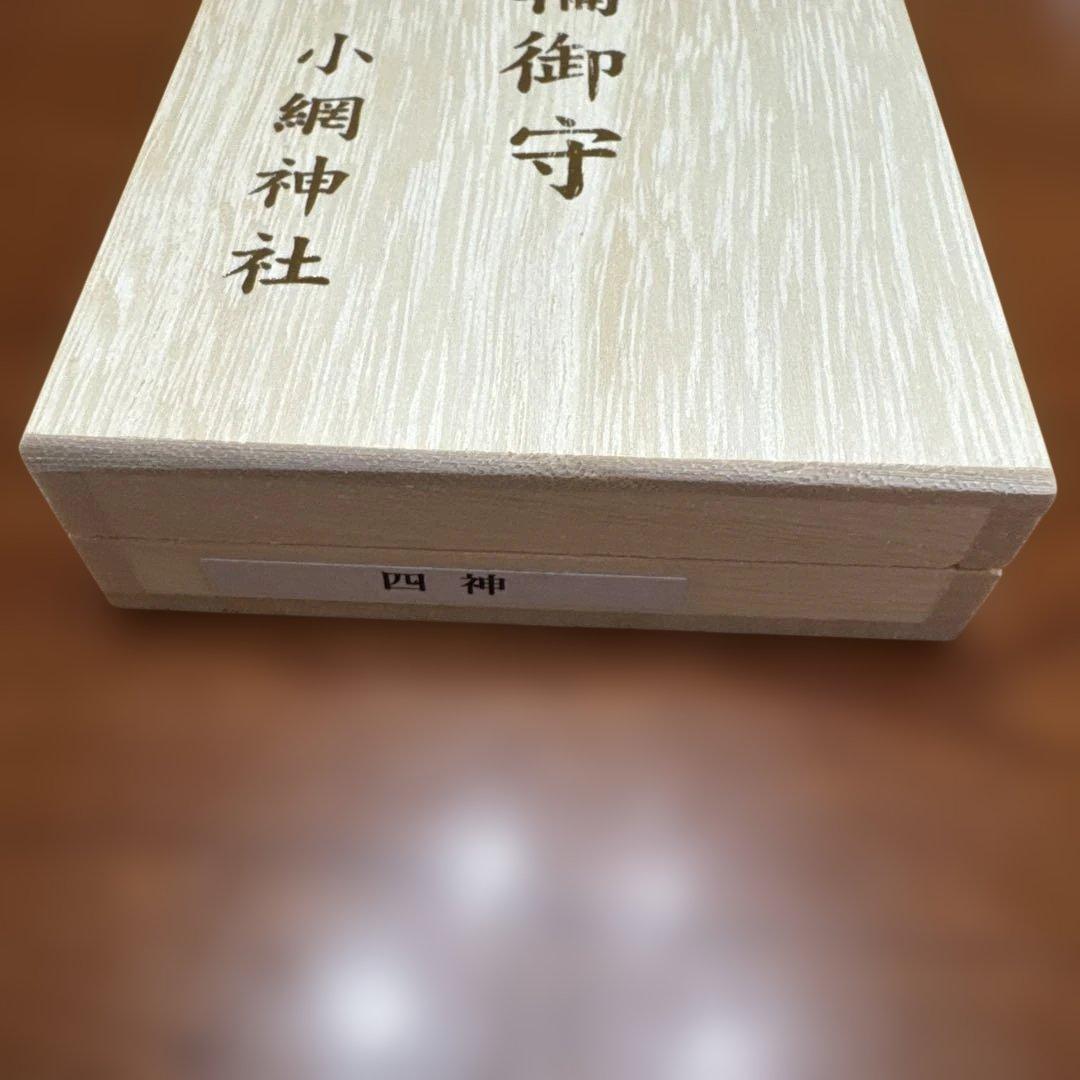 御守
小網神社
四神